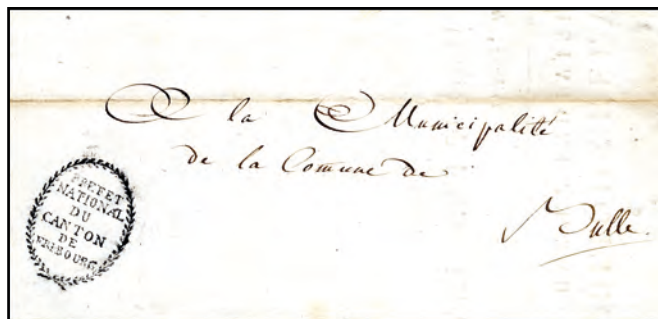 A la Municipalité
de la Comune de
Bulle.
PREFET
NATIONAL
DU
CANTON
DE
FRIBOURG